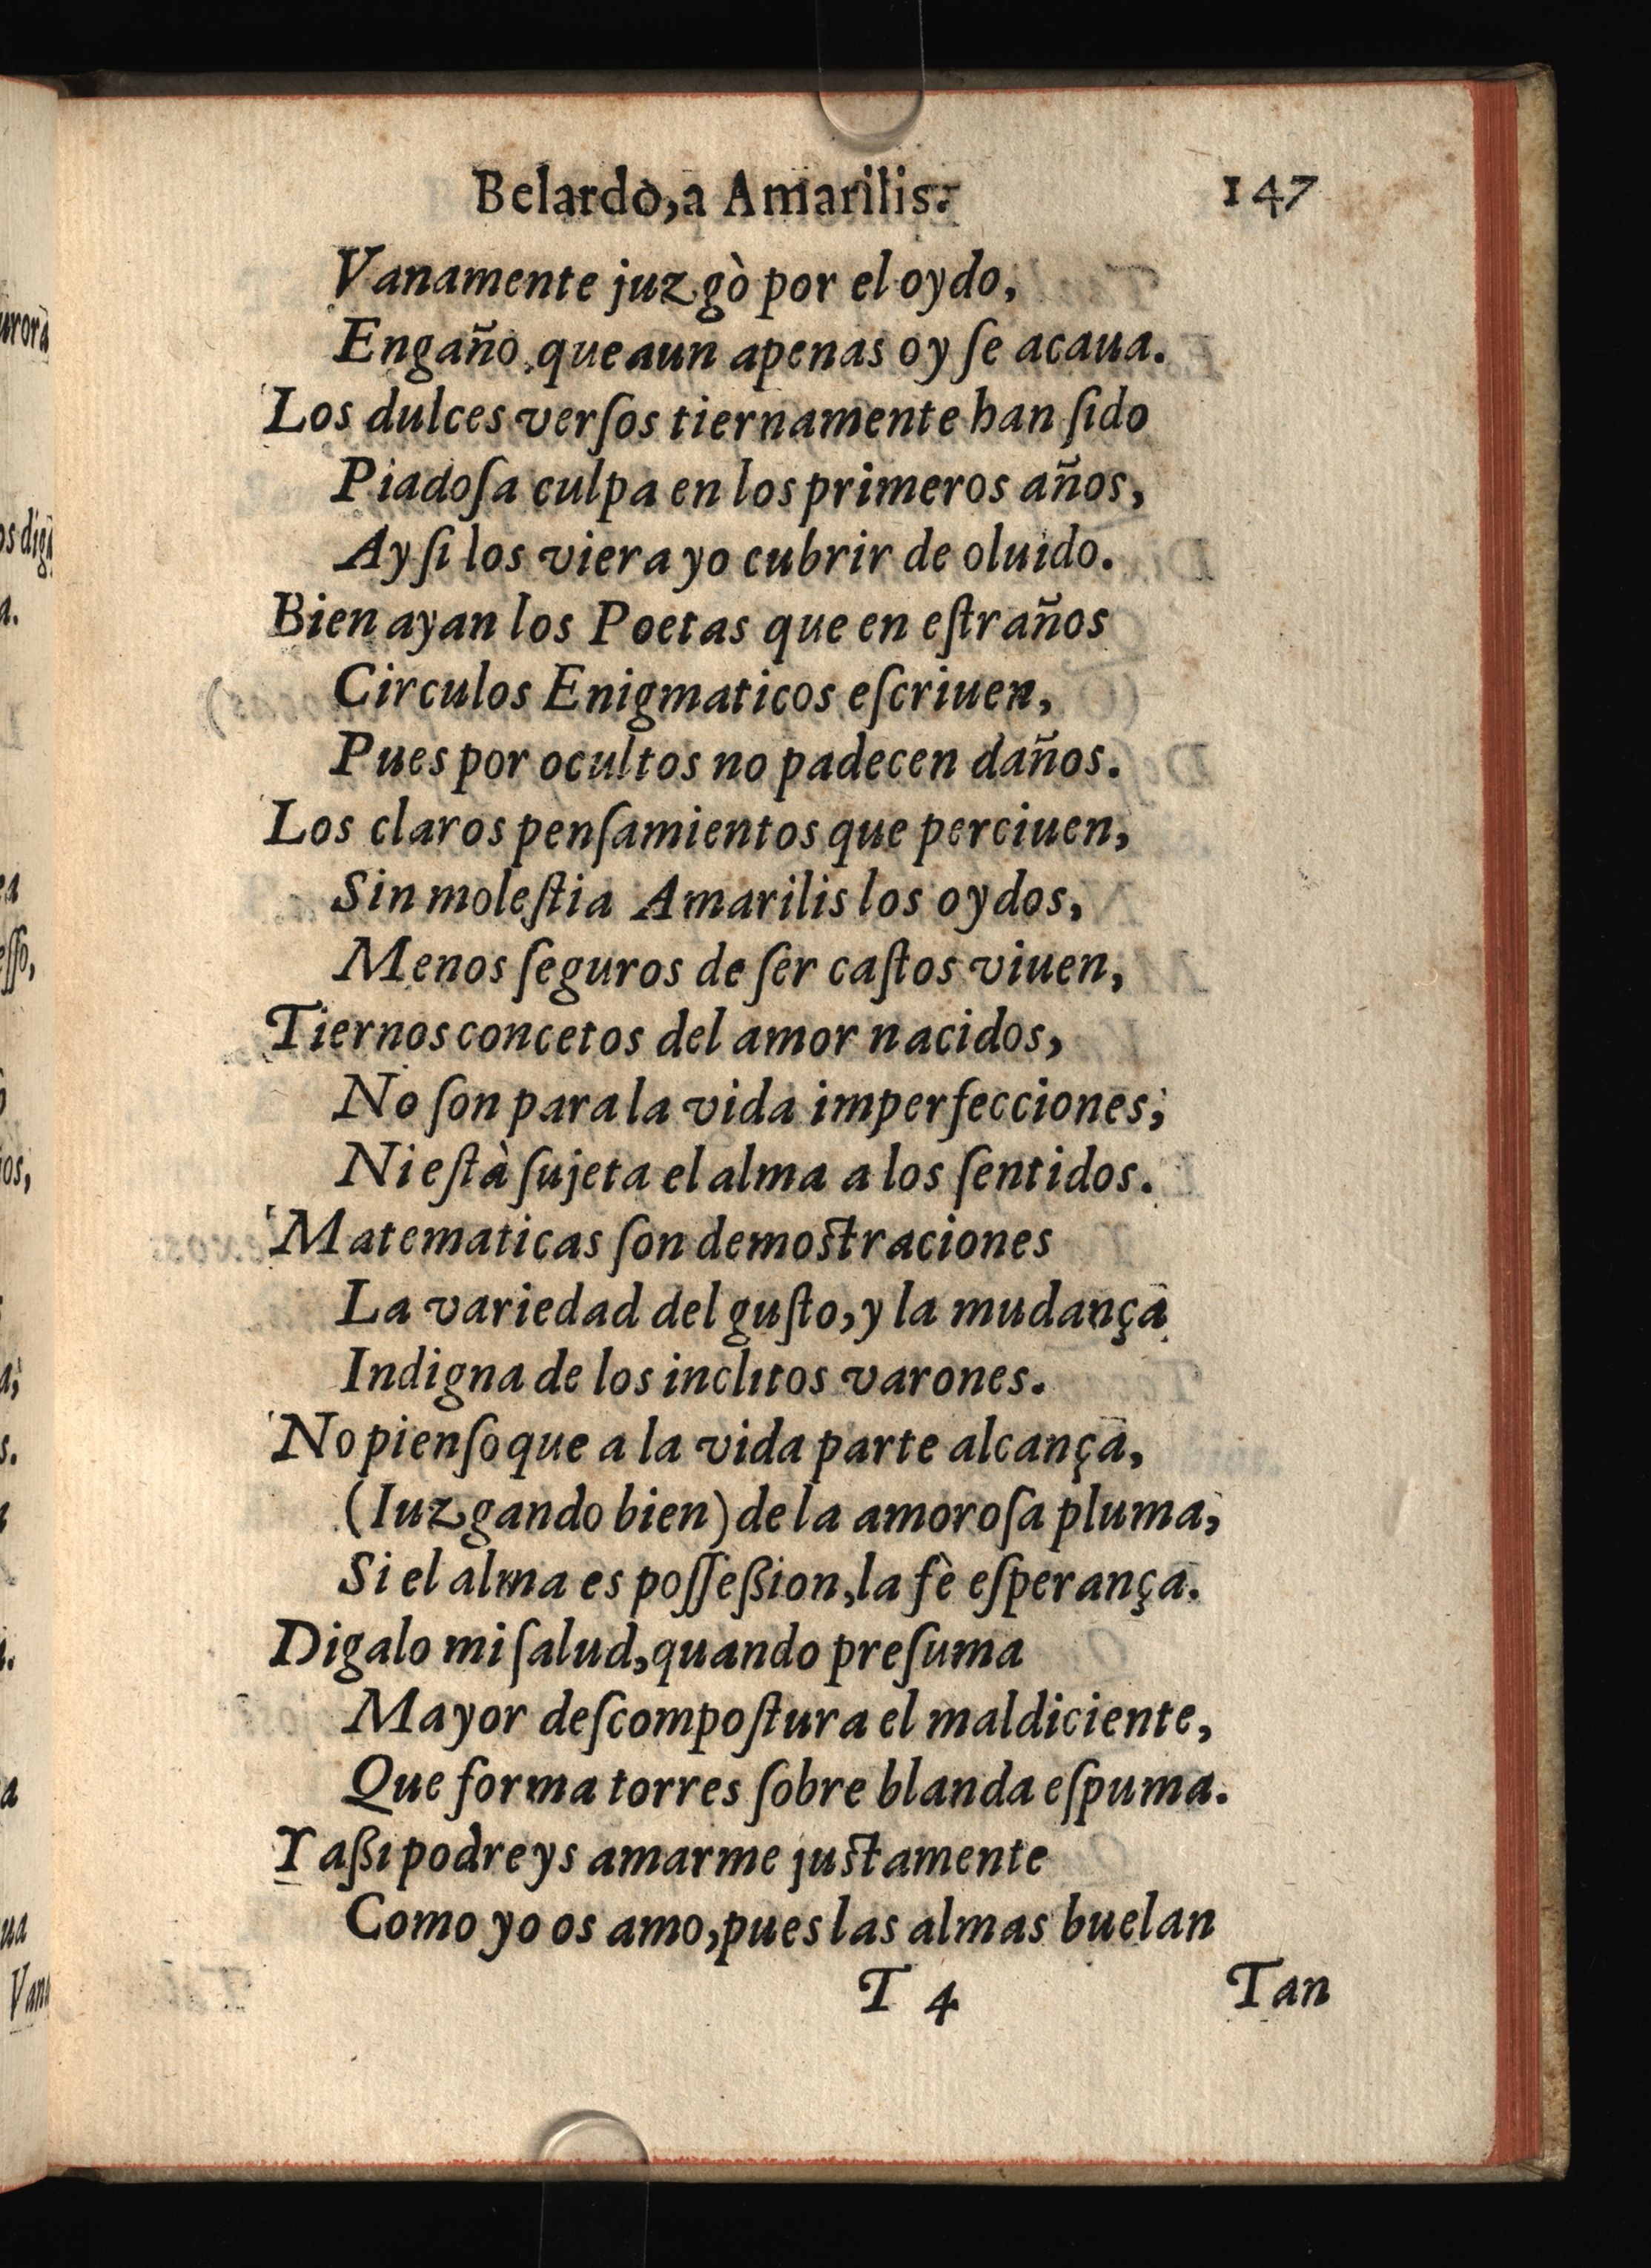 Belardo, a Amarilis. 147
Vanamente juzgò por el oydo,
Engaño, que aun apenas oy ſe acaua.
Los dulces verſos tiernamente han ſido
Piadoſa culpa en los primeros años,
Ay ſi los viera yo cubrir de oluido.
Bien ayan los Poetas que en eſtraños
Circulos Enigmaticos eſcriuen,
Pues por ocultos no padecen daños.
Los claros penſamientos que perciuen,
Sin moleſtia Amarilis los oydos,
Menos ſeguros de ſer caſtos viuen,
Tiernos concetos del amor nacidos,
No ſon para la vida imperfecciones,
Ni eſtà ſujeta el alma a los ſentidos.
Matematicas ſon demoſtraciones
La variedad del guſto, y la mudança
Indigna de los inclitos varones.
No pienſo que a la vida parte alcança,
(Iuzgando bien) de la amoroſa pluma,
Si el alma es poſſeßion, la fè eſperança.
Digalo mi ſalud, quando preſuma
Mayor deſcompoſtura el maldiciente,
Que forma torres ſobre blanda eſpuma.
Y aßi podreys amarme juſtamente
Como yo os amo, pues las almas buelan
T 4 Tan